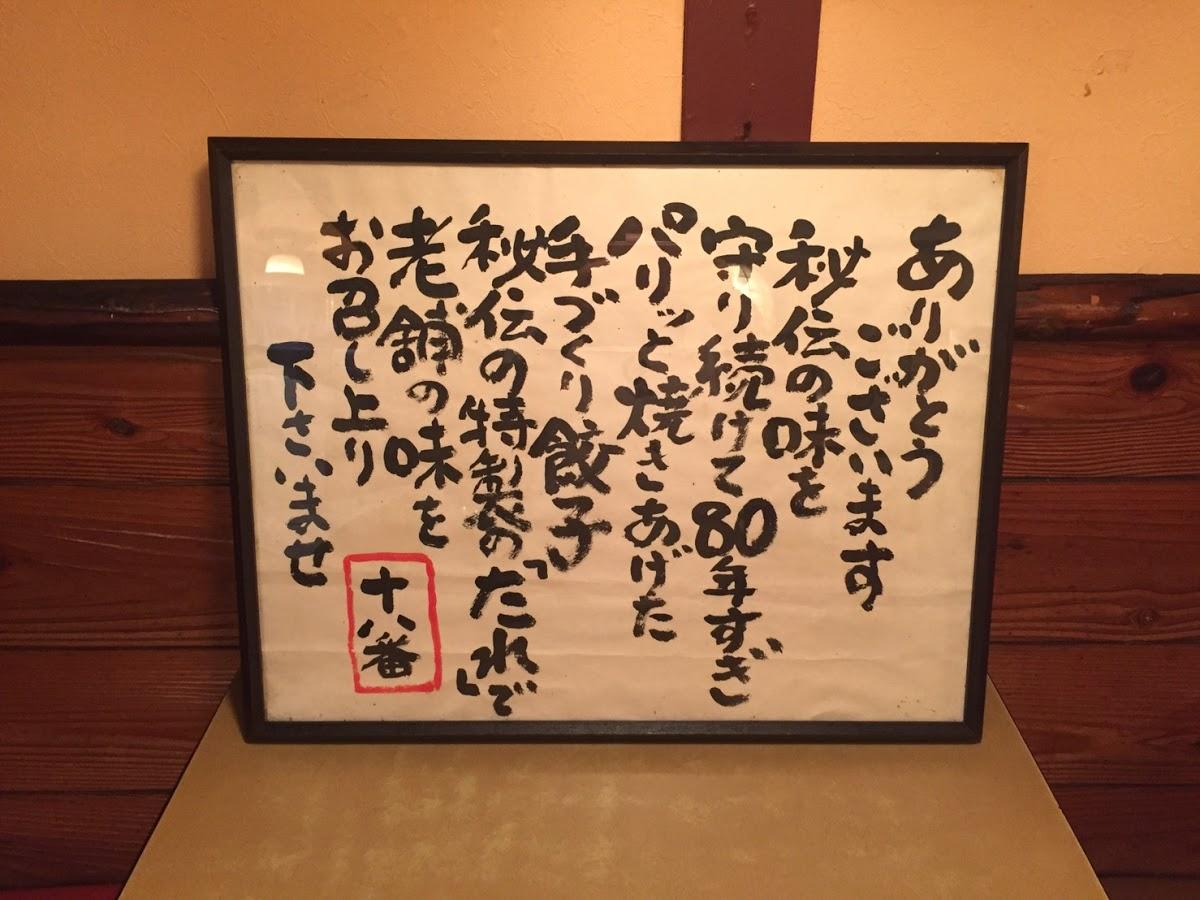 ありがとう
ございます
秘伝の味を
守り続けて80年すぎ
パリッと焼きあげた
手づくり餃子
秘伝の特製の「たれ」で
老舗の味を
お召し上り
下さいませ
十八番